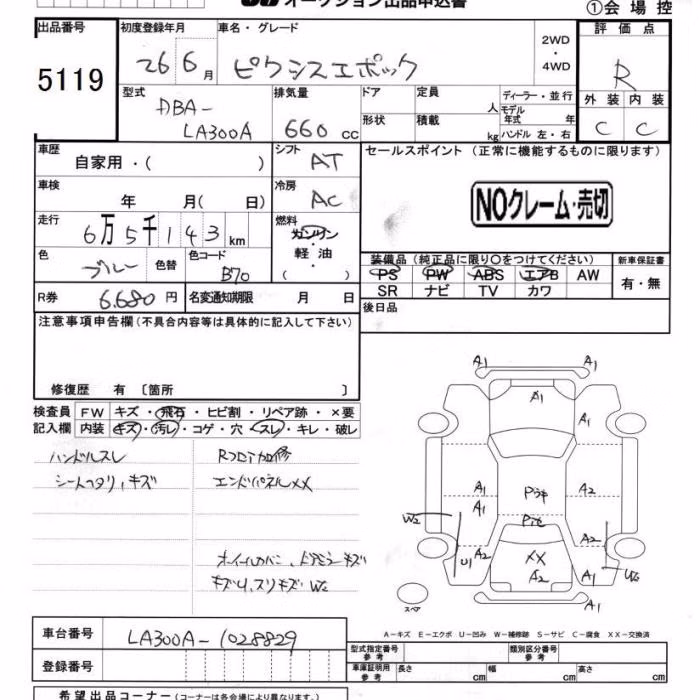 オークション出品申込書
①会場控
出品番号
5119
初度登録年月
26 6月
車名・グレード
ピクシスエポック
2WD
・
4WD
評価点
R
外装 内装
C C
型式
DBA-
LA300A
排気量
660cc
ドア
形状
定員 人
積載 kg
ディーラー・並行
モデル年式 年
ハンドル 左・右
車歴
自家用・( )
シフト
AT
セールスポイント (正常に機能するものに限ります)
NOクレーム・売切
車検
年 月( 日)
冷房
AC
走行
6万5千143km
燃料
ガソリン
・
軽油
・
( )
色
ブルー
色替
色コード
B70
装備品 (純正品に限り○をつけてください)
PS PW ABS エアB AW
SR ナビ TV カワ
新車保証書
有・無
R券
6.680円
名変通知期限 月 日
後日品
注意事項申告欄 (不具合内容等は具体的に記入して下さい)
修復歴 有 〔箇所 〕
検査員記入欄
FW キズ・飛石・ヒビ割・リペア跡・×要
内装 キズ・汚レ・コゲ・穴・スレ・キレ・破レ
ハンドルスレ
シートヘタリ,キズ
Rフロア加修
エンドパネルXX
オイルカバー、ドアミラーキズ
キズU,スリキズ W2
A1
A1
A1
A1
A1
A1
A1
A2
Pキ
W2
U1
A2
A2
XX
A2
A1
W2
A1
スペア
A-キズ E-エクボ U-凹み W-補修跡 S-サビ C-腐食 XX-交換済
車台番号
LA300A-1028829
登録番号
型式指定番号
参考
類別区分番号
参考
車庫証明用
参考
長さ cm
幅 cm
高さ cm
希望出品コーナー (コーナーは各会場により異なります。)